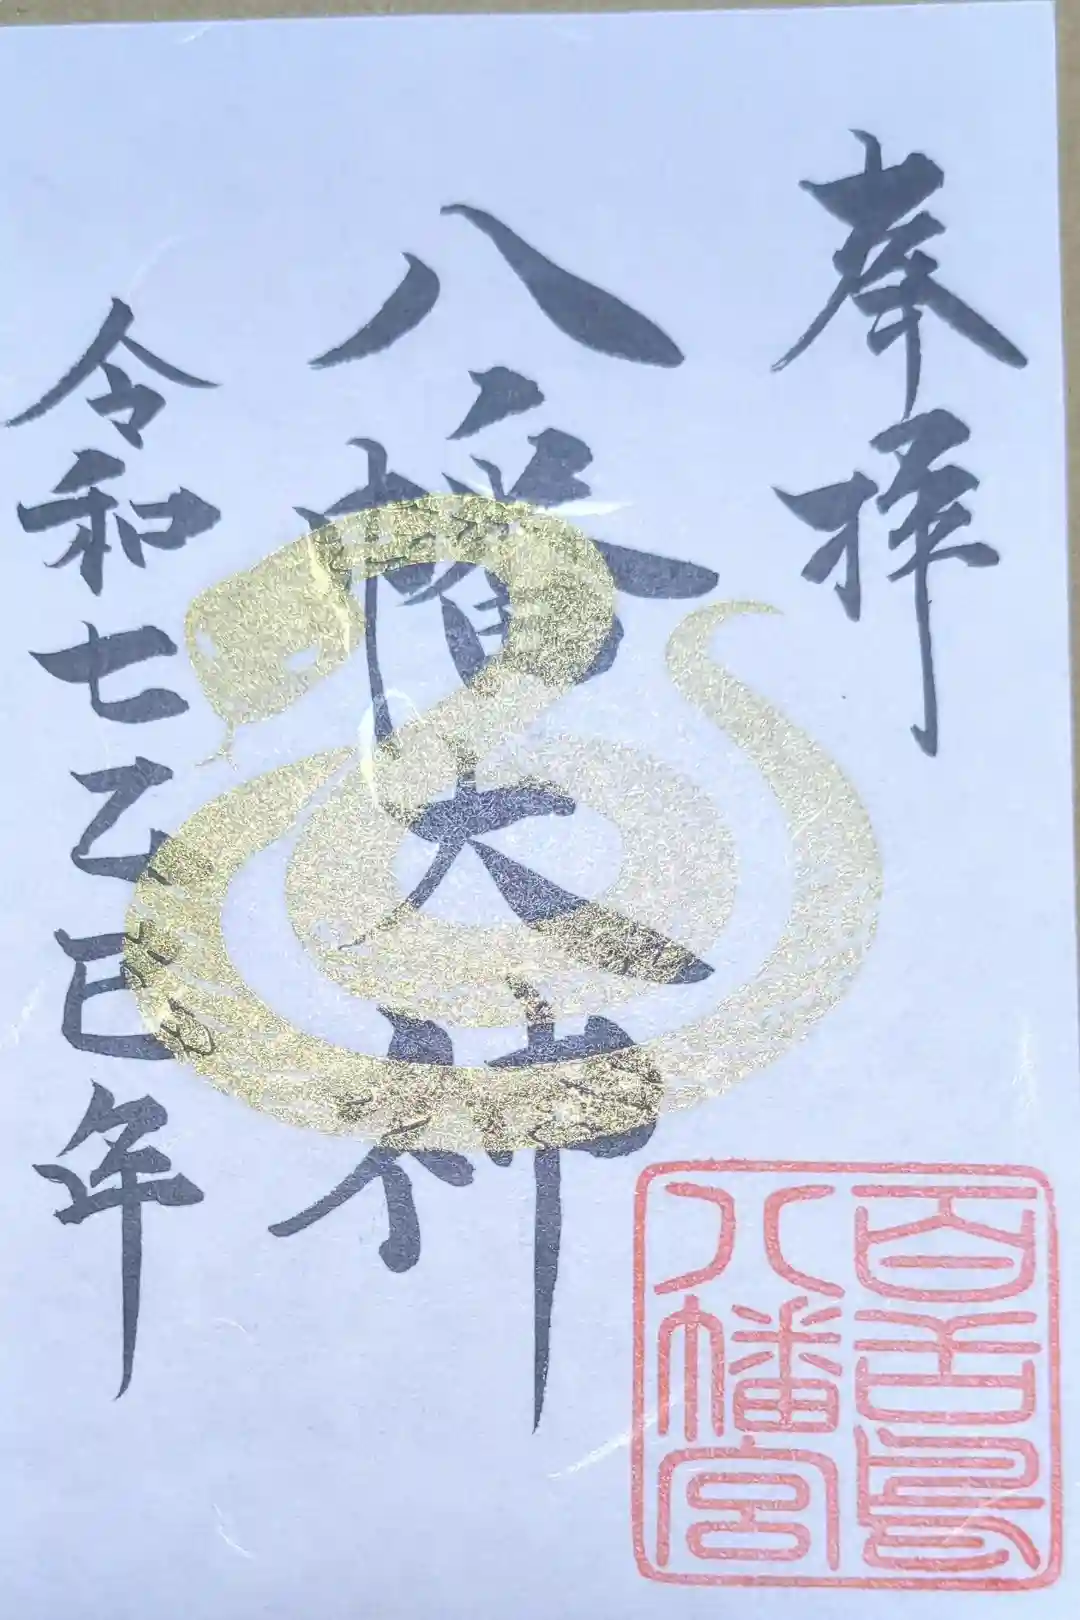 奉拝
八幡大神
令和七乙巳年
百舌鳥
八幡宮